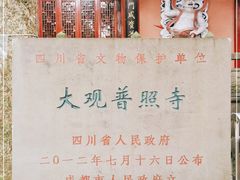 四川省文物保护单位
大观普照寺
四川省人民政府
二〇一二年七月十六日公布
成都市人民政府立